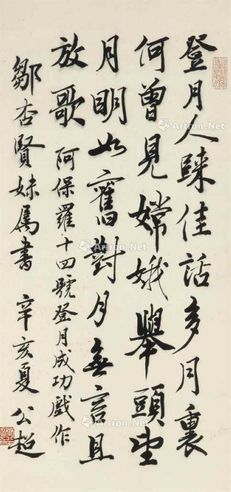 登月人踪佳話多月裏
何曾見嫦娥舉頭望
月明如舊對月無言且
放歌 阿保羅十四號登月成功戲作
鄒杏賢妹屬書 辛亥夏 公超